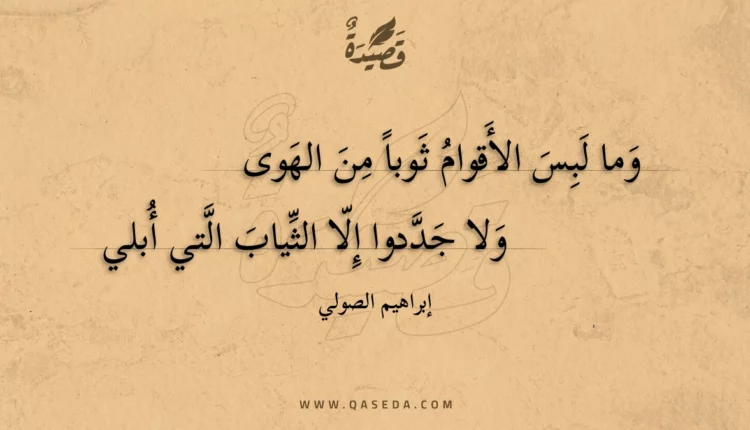 قَصِيْدَةٌ
وَما لَبِسَ الأَقوامُ ثَوباً مِنَ الهَوى
وَلا جَدَّدوا إِلّا الثِّيابَ الَّتي أُبلي
إبراهيم الصولي
WWW.QASEDA.COM